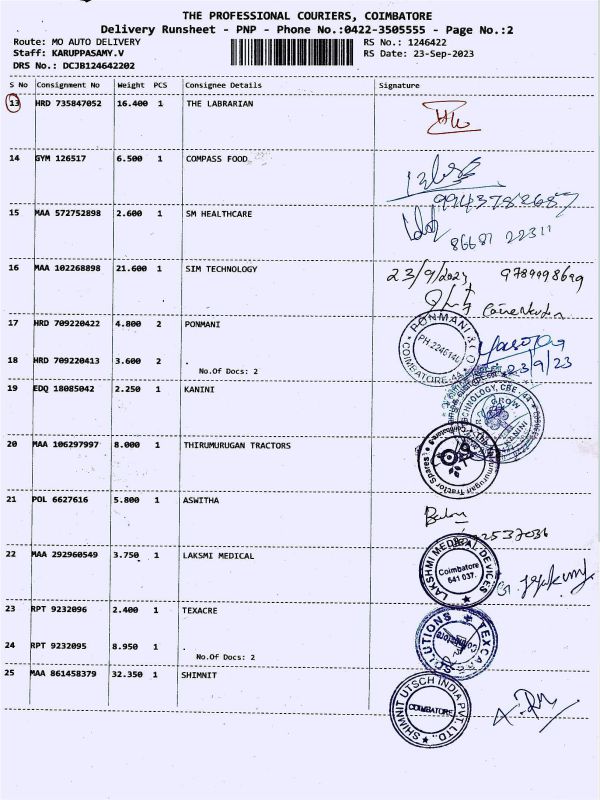 THE PROFESSIONAL COURIERS, COIMBATORE
Delivery Runsheet - PNP - Phone No.:0422-3505555 - Page No.:2
Route: MO AUTO DELIVERY RS No.: 1246422
Staff: KARUPPASAMY.V RS Date: 23-Sep-2023
DRS No.: DCJB124642202
S No Consignment No Weight PCS Consignee Details Signature
13 HRD 735847052 16.400 1 THE LABRARIAN
14 GYM 126517 6.500 1 COMPASS FOOD
9943782687
15 MAA 572752898 2.600 1 SM HEALTHCARE
86681 22311
16 MAA 102268898 21.600 1 SIM TECHNOLOGY 23/9/2023 9789998699
17 HRD 709220422 4.800 2 PONMANI PONMANI & CO
PH:2246140
COIMBATORE-44
18 HRD 709220413 3.600 2 23/9/23
No.Of Docs: 2
19 EDQ 18085042 2.250 1 KANINI
20 MAA 106297997 8.000 1 THIRUMURUGAN TRACTORS
Thirumurugan Tractor Spares Coimbatore
21 POL 6627616 5.800 1 ASWITHA
22 MAA 292960549 3.750 1 LAKSMI MEDICAL LAKSHMI MEDICAL DEVICES
Coimbatore
641 037.
23 RPT 9232096 2.400 1 TEXACRE
24 RPT 9232095 8.950 1
No.Of Docs: 2
25 MAA 861458379 32.350 1 SHIMNIT SHIMNIT UTSCH INDIA PVT. LTD.,
COIMBATORE